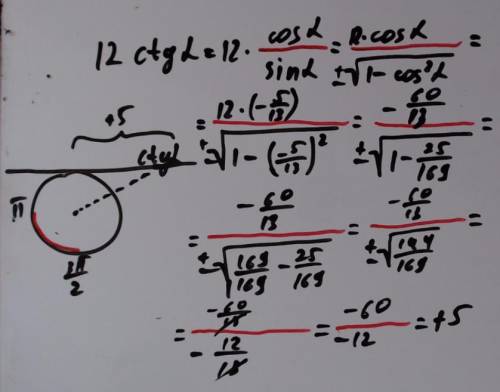 12 ctgα = 12 · cosα/sinα = 12·cosα/±√(1 − cos²α) =
= 12·(−5/13)/±√(1 − (−5/13)²) = −60/13/±√(1 − 25/169) =
= −60/13/±√(169/169 − 25/169) = −60/13/±√(144/169) =
= −60/13/−12/13 = −60/−12 = +5
+5
ctgα
π
3π/2